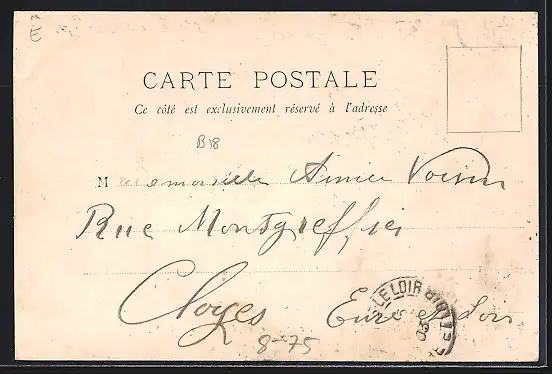 CARTE POSTALE
Ce côté est exclusivement réservé à l'adresse
B18
Mademoiselle Aimée Voisin
Rue Montgreffier
Cloyes Eure et Loir
LE LOIR
03
8-75